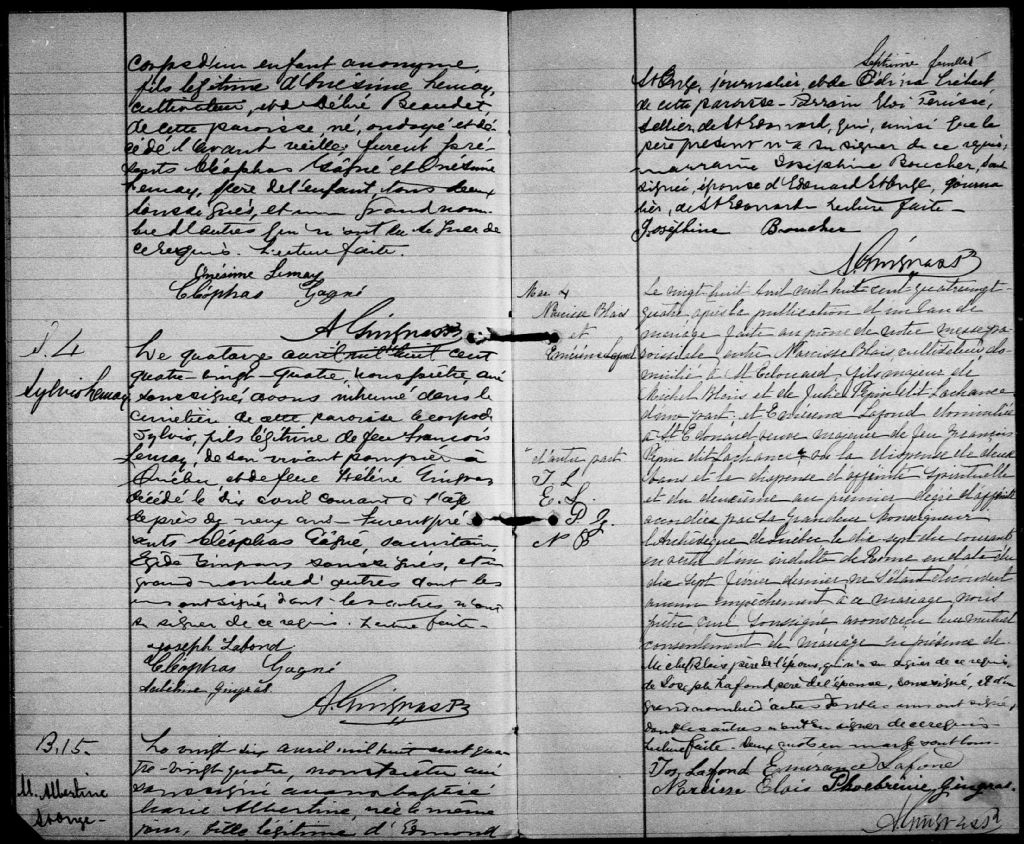 corps d'un enfant anonyme,
fils légitime d'Onésime Lemay,
cultivateur, et de Délire Beaudet,
de cette paroisse, né, ondoyé et dé-
cédé l'avant veille. Furent pré-
sents Cléophas Gagné et Onésime
Lemay, père de l'enfant, tous deux
soussignés, et un grand nom-
bre d'autres qui n'ont su signer de
ce requis. Lecture faite.
Onésime Lemay
Cléophas Gagné
A. Gingras Ptr
S. 4
Sylvio Lemay
Le quatorze avril mil huit cent
quatre-vingt-quatre, nous prêtre, curé
soussigné, avons inhumé dans le
cimetière de cette paroisse le corps de
Sylvio, fils légitime de feu François
Lemay, de son vivant pompier à
Québec, et de feue Hélène Gingras
décédé le dix avril courant à l'âge
de près de neuf ans. Furent pré-
sents Cléophas Gagné, sacristain,
Gingras soussignés, et un
grand nombre d'autres dont les
uns ont signé dont les autres n'ont
su signer de ce requis. Lecture faite-
Joseph Lafond
Cléophas Gagné
Gingras
A. Gingras Ptr
B. 15.
M. Albertine
St Onge-
Le vingt six avril mil huit cent qua-
tre-vingt quatre, nous prêtre curé
soussigné avons baptisé
Marie Albertine, née le même
jour, fille légitime d'Edmond
Septième feuillet
St Onge, journalier, et de
de cette paroisse- Parrain Eloi
sellier, de St Edouard, qui, ainsi que le
père présent n'a su signer de ce requis,
marraine Joséphine Boucher, sous
signée, épouse d'Edouard St Onge, journa-
lier, de St Edouard. Lecture faite-
Joséphine Boucher
A. Gingras Ptr
Mar 4
Narcisse Blais
et
Emérence Lafond
Le vingt huit avril mil huit cent quatre vingt-
quatre après la publication d'un ban de
mariage faite au prône de notre messe pa-
roissiale entre Narcisse Blais, cultivateur, do-
micilié à St Edouard, fils majeur de
Michel Blais et de Julie Pépin dit Lachance
d'une part; et Emérence Lafond domiciliée
à St Edouard veuve majeure de feu François
Pépin dit Lachance, vu la dispense de deux
bans et la dispense d'affinité spirituelle
et du deuxième au premier degré d'affinité
accordées par Sa Grandeur Monseigneur
l'Archevêque de Québec le dix sept du courant
en vertu d'un indult de Rome en date du
dix sept février dernier, ne s'étant découvert
aucun empêchement à ce mariage, nous
prêtre, curé soussigné avons reçu leur mutuel
consentement de mariage en présence de
Michel Blais, père de l'époux, qui n'a su signer de ce requis,
de Joseph Lafond, père de l'épouse, soussigné, et d'un
grand nombre d'autres dont les uns ont signé,
dont les autres n'ont su signer de ce requis.
Lecture faite - deux mots en marge sont bons-
"d'autre part
J. L
E. L.
P. G.
N B
Jos Lafond Emerance Lafond
Narcisse Blais Phoebrinie Gingras
A. Gingras Ptr